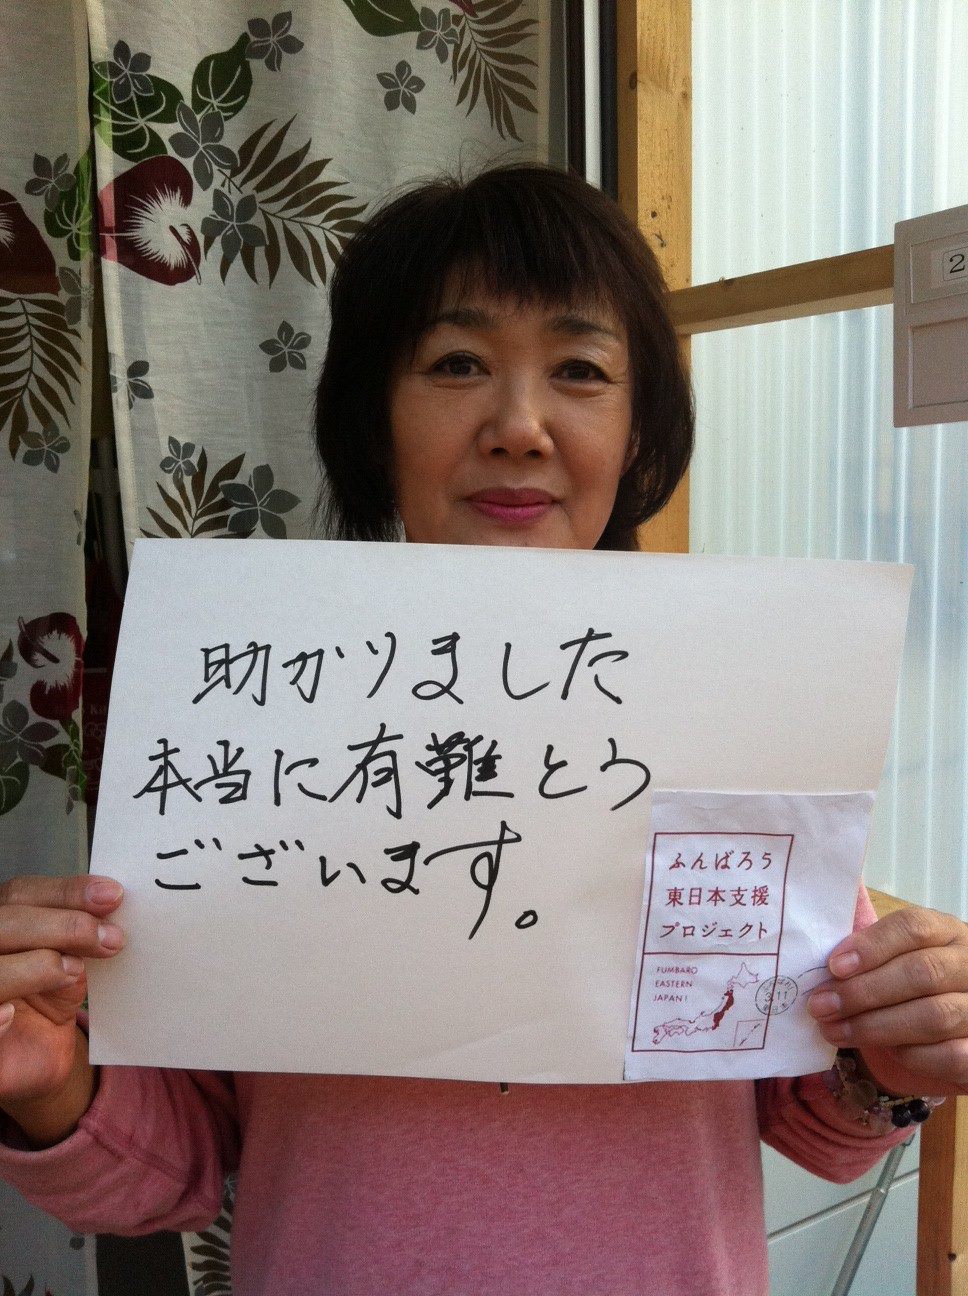 助かりました
本当に有難とう
ございます。
ふんばろう
東日本支援
プロジェクト
FUMBARO
EASTERN
JAPAN!
3.11
2